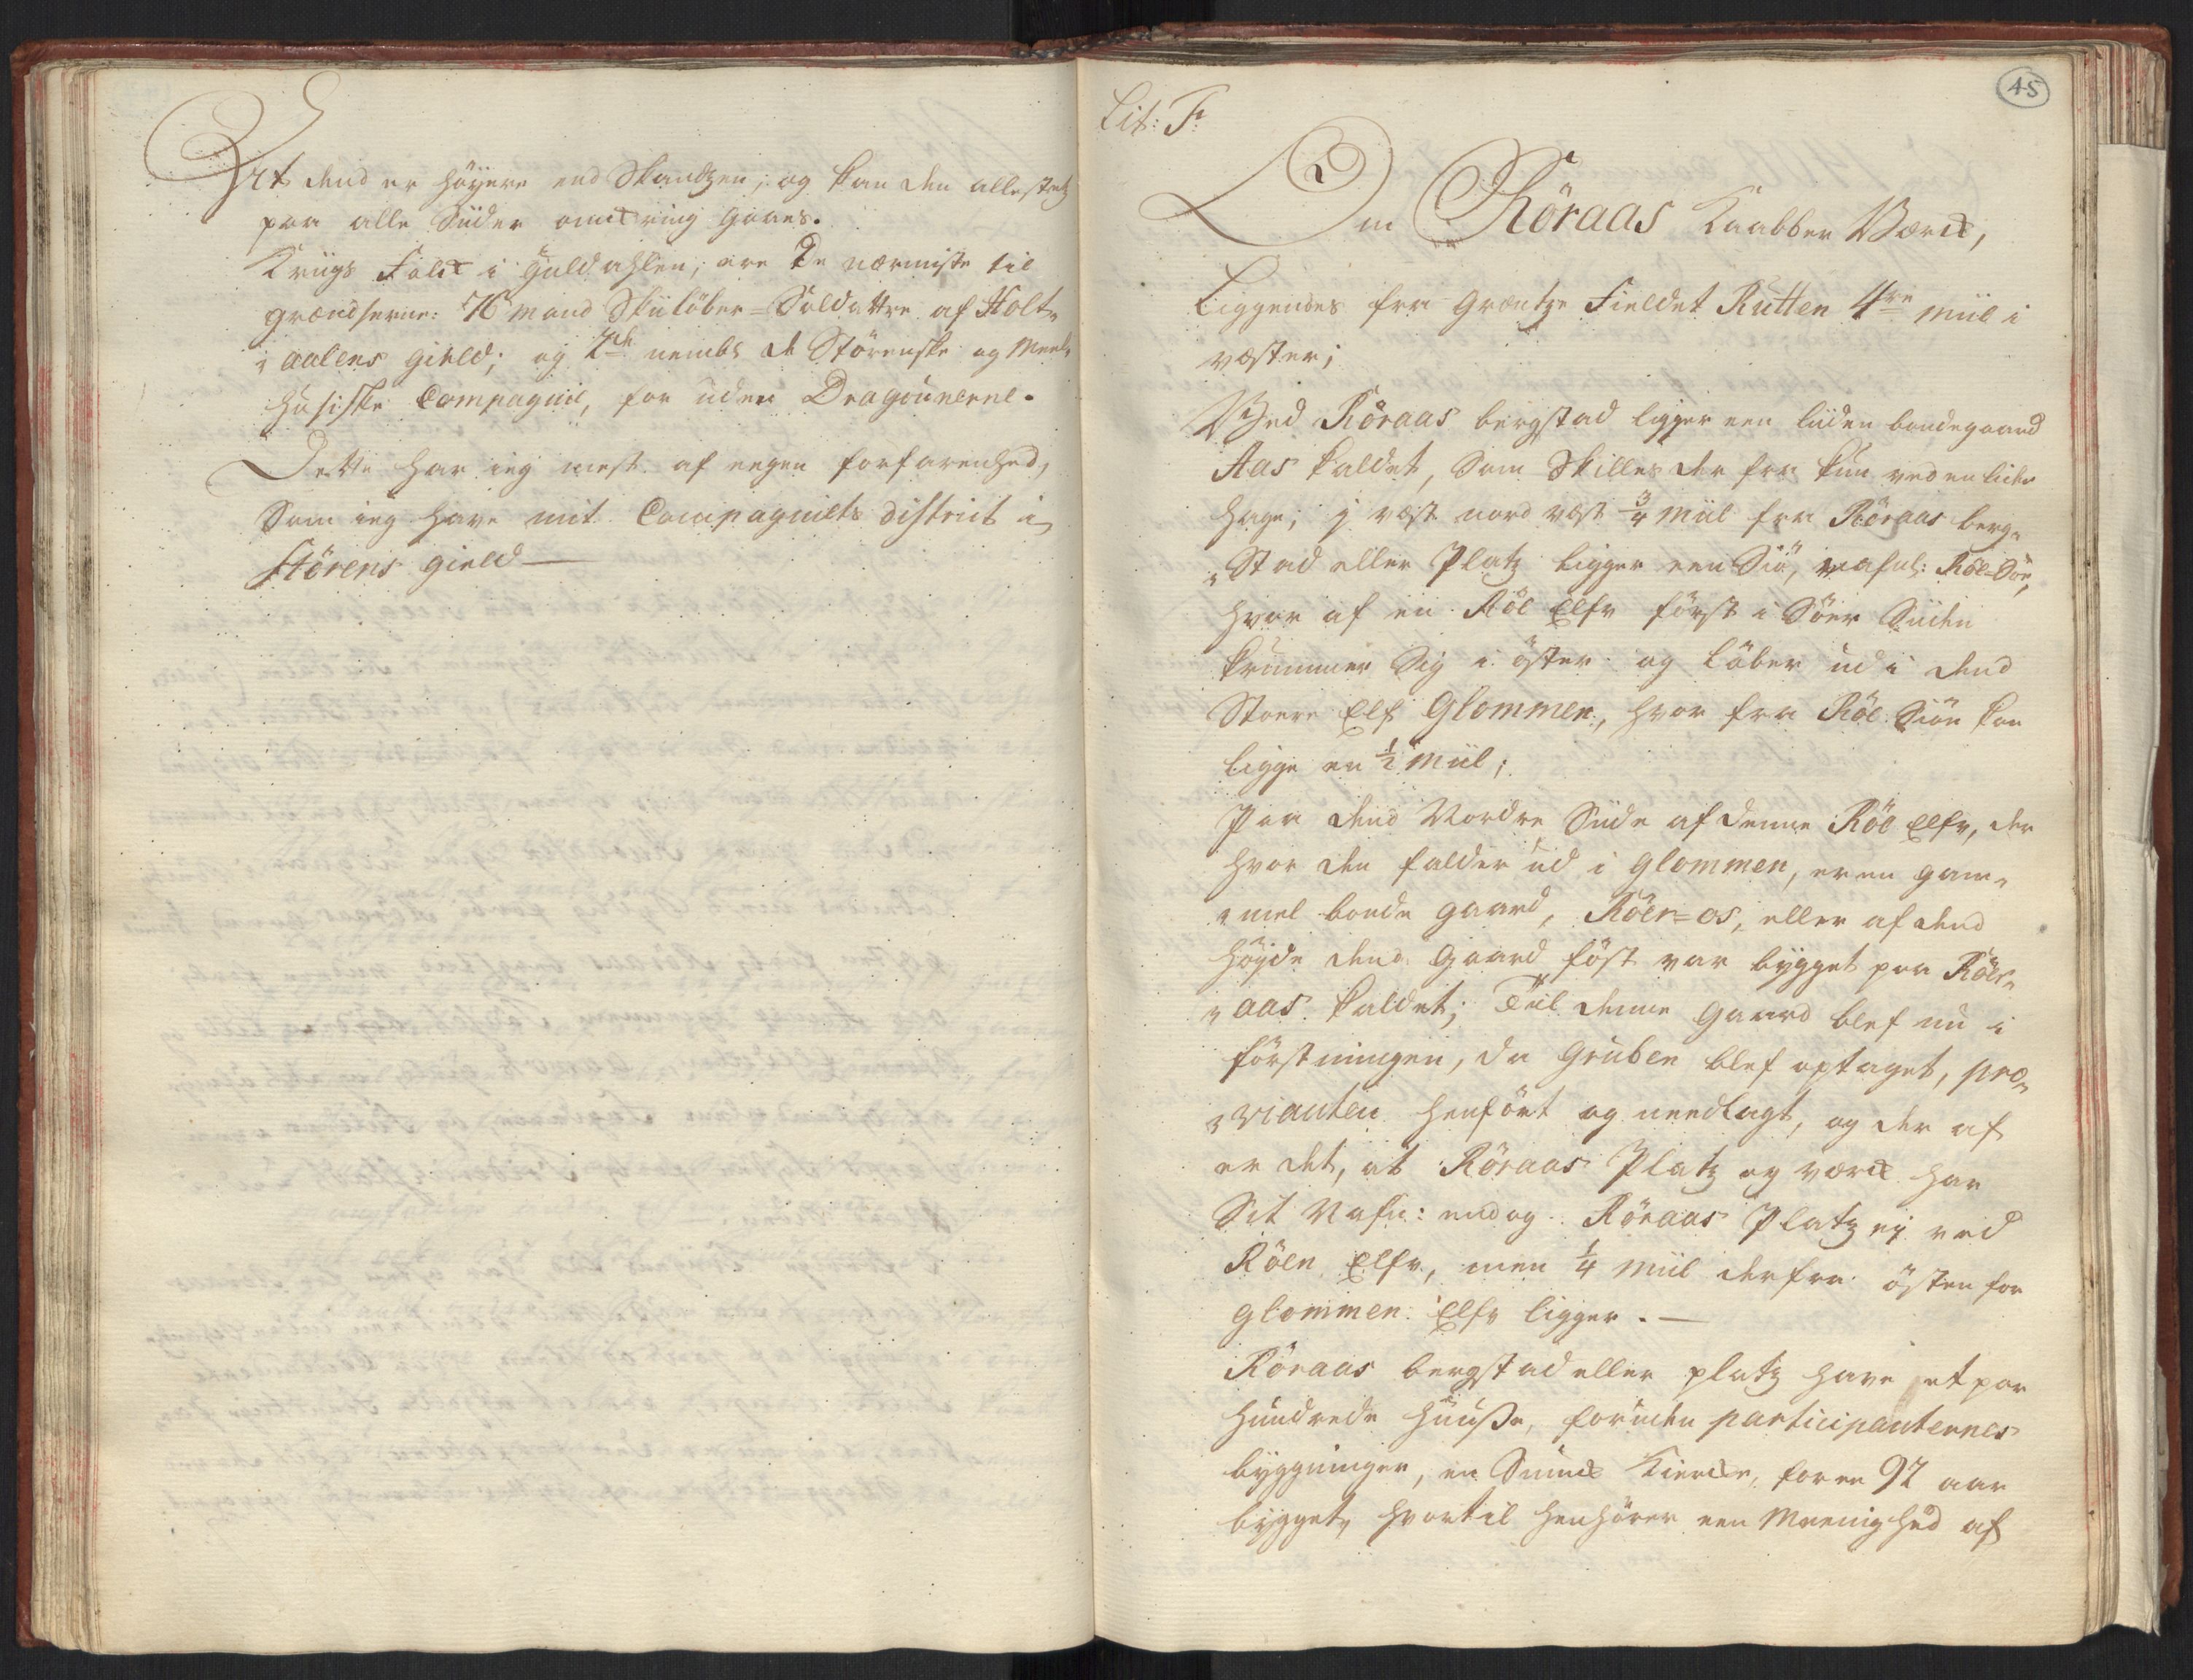 Hrt dend er höÿere end Skandtzen; og kan den allestetz
paa alle Siider omkring gaaes.
Kriigs Folck i Guldahlen, ere de nærmiste til
grændserne: 76 mand Skilöber=Soldattre af Holt„
„aalens gield; og 2de nembl. de Störenske og Meel„
husiske Compagnie, for uden Dragounerne.
Dette har ieg mest af eegen forfarenhed,
Som ieg have mit Compagniets district i
Störens gield —
45
Lit: F:
Om Röraas Kaabber Værck,
Liggendes fra Grentze Fieldet Rutten 4re miil i
væster;
Ved Röraas bergstad ligger een liiden bondegaard
Aas kaldet, Som Skilles der fra kun ved en liden
Hage; j væst nord væst 3/4 Miil fra Röraas berg„
„Stad eller Platz ligger een Siö, nafnl: Röe=Söe,
hvor af en Röe Elfv först i Söer Siiden
krummer Sig i öster og löber ud i dend
Stoere Elf Glommen, hvor fra Röe Siön kan
ligge en 1/2 Miil;
Paa dend Nordre Siide af denne Röe Elfv, der
hvor den falder ud i Glommen, er en gam„
„mel bonde gaard, Röen=os, eller af dend
höÿde dend Gaard föst var bygget paa Röer„
„aas kaldet; Till denne Gaard blef nu i
förstningen, da Gruben blef optaget, pro„
„vianten henfört og needlagt, og der af
er det, at Röraas Platz og værck har
Sit Nafn: endog Röraas Platz ej ved
Röen Elfv, men 1/4 Miil derfra östen for
Glommen Elfv ligger. —
Röraas bergstad eller platz have et par
hundrede huuße, foruden participanternes
byggninger, en Smuck Kiercke, for en 92 aar
bygget, hvortil henhörer een Meenighed af